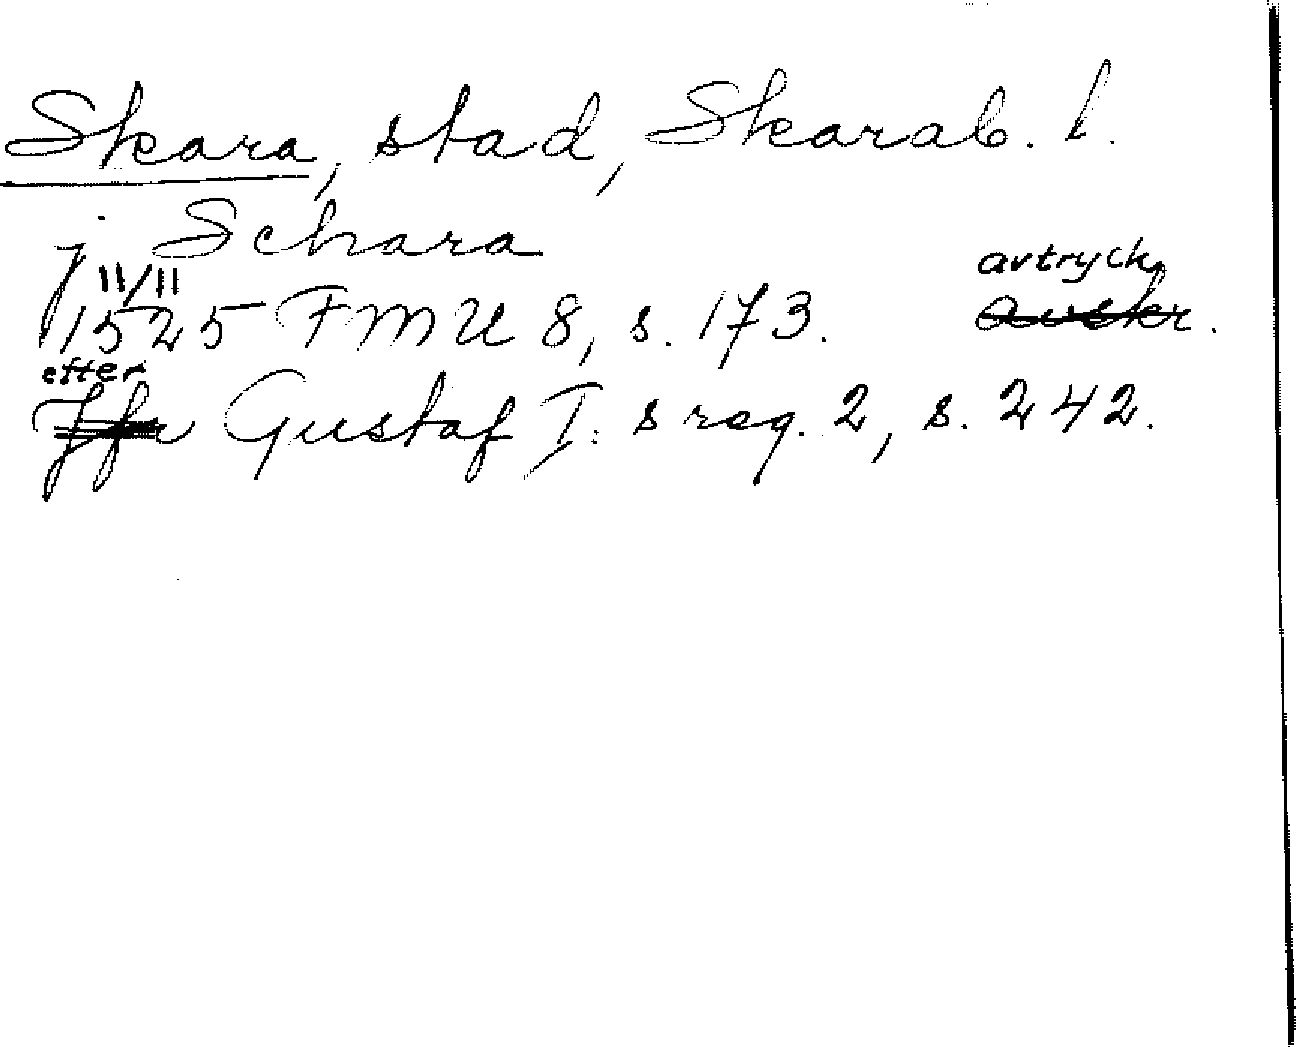 Skara, stad, Skarab. l.
j Schara
11/11 avtryck
1525 FMU 8, s. 173. avskr.
efter
Jfr Gustaf I:s reg. 2, s. 242.